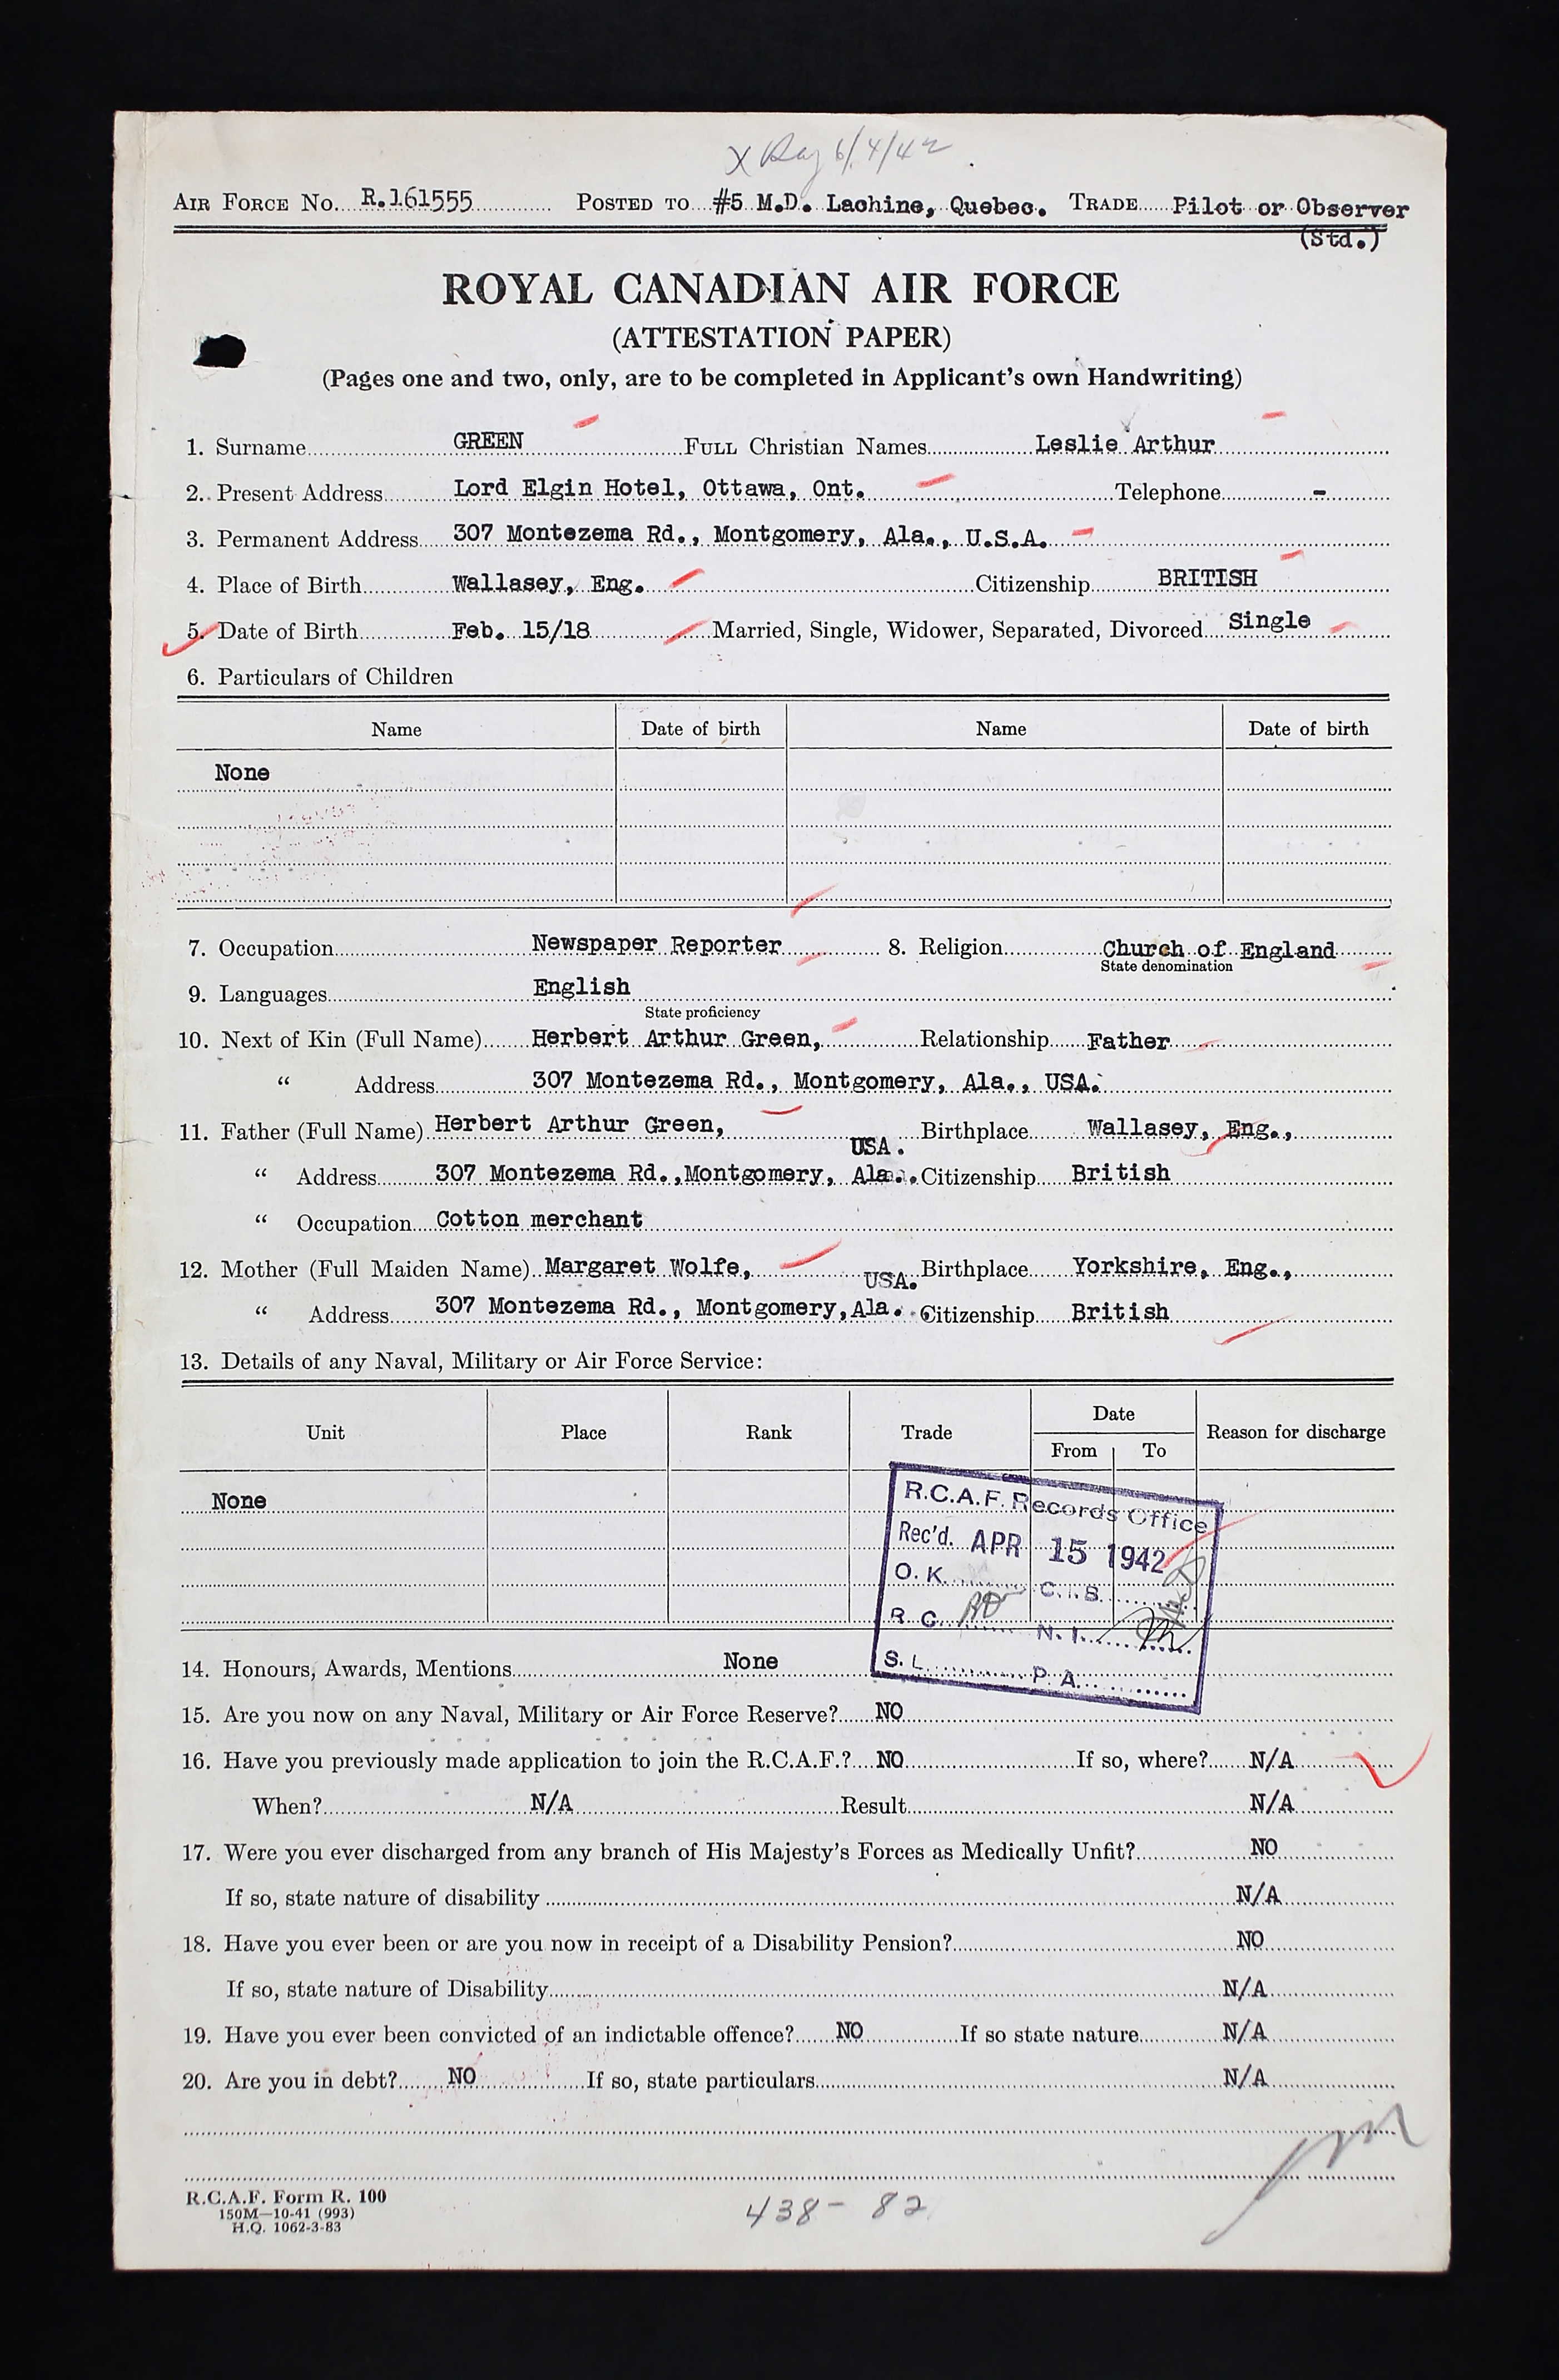 X Ray 6/4/42
AIR FORCE NO. R.161555 POSTED TO #5 M.D. Lachine, Quebec. TRADE Pilot or Observer
(Std.)
ROYAL CANADIAN AIR FORCE
(ATTESTATION PAPER)
(Pages one and two, only, are to be completed in Applicant's own Handwriting)
1. Surname GREEN FULL Christian Names Leslie Arthur
2. Present Address Lord Elgin Hotel, Ottawa, Ont. Telephone -
3. Permanent Address 307 Montezema Rd., Montgomery, Ala., U.S.A.
4. Place of Birth Wallasey, Eng. Citizenship BRITISH
5. Date of Birth Feb. 15/18 Married, Single, Widower, Separated, Divorced Single
6. Particulars of Children
Name Date of birth Name Date of birth
None
7. Occupation Newspaper Reporter 8. Religion Church of England
State denomination
9. Languages English
State proficiency
10. Next of Kin (Full Name) Herbert Arthur Green, Relationship Father
“ Address 307 Montezema Rd., Montgomery, Ala., USA.
11. Father (Full Name) Herbert Arthur Green, Birthplace Wallasey, Eng.,
USA.
“ Address 307 Montezema Rd.,Montgomery, Ala.. Citizenship British
“ Occupation Cotton merchant
12. Mother (Full Maiden Name) Margaret Wolfe, Birthplace Yorkshire, Eng.,
USA.
“ Address 307 Montezema Rd., Montgomery,Ala. Citizenship British
13. Details of any Naval, Military or Air Force Service:
Unit Place Rank Trade Date Reason for discharge
From To
None
R.C.A.F. Records Office
Rec'd. APR 15 1942
O. K. C. I. S.
R. C. N. I.
S. L. P. A.
14. Honours, Awards, Mentions None
15. Are you now on any Naval, Military or Air Force Reserve? NO
16. Have you previously made application to join the R.C.A.F.? NO If so, where? N/A
When? N/A Result N/A
17. Were you ever discharged from any branch of His Majesty's Forces as Medically Unfit? NO
If so, state nature of disability N/A
18. Have you ever been or are you now in receipt of a Disability Pension? NO
If so, state nature of Disability N/A
19. Have you ever been convicted of an indictable offence? NO If so state nature N/A
20. Are you in debt? NO If so, state particulars N/A
R.C.A.F. Form R. 100
150M—10-41 (993)
H.Q. 1062-3-83
438 - 82